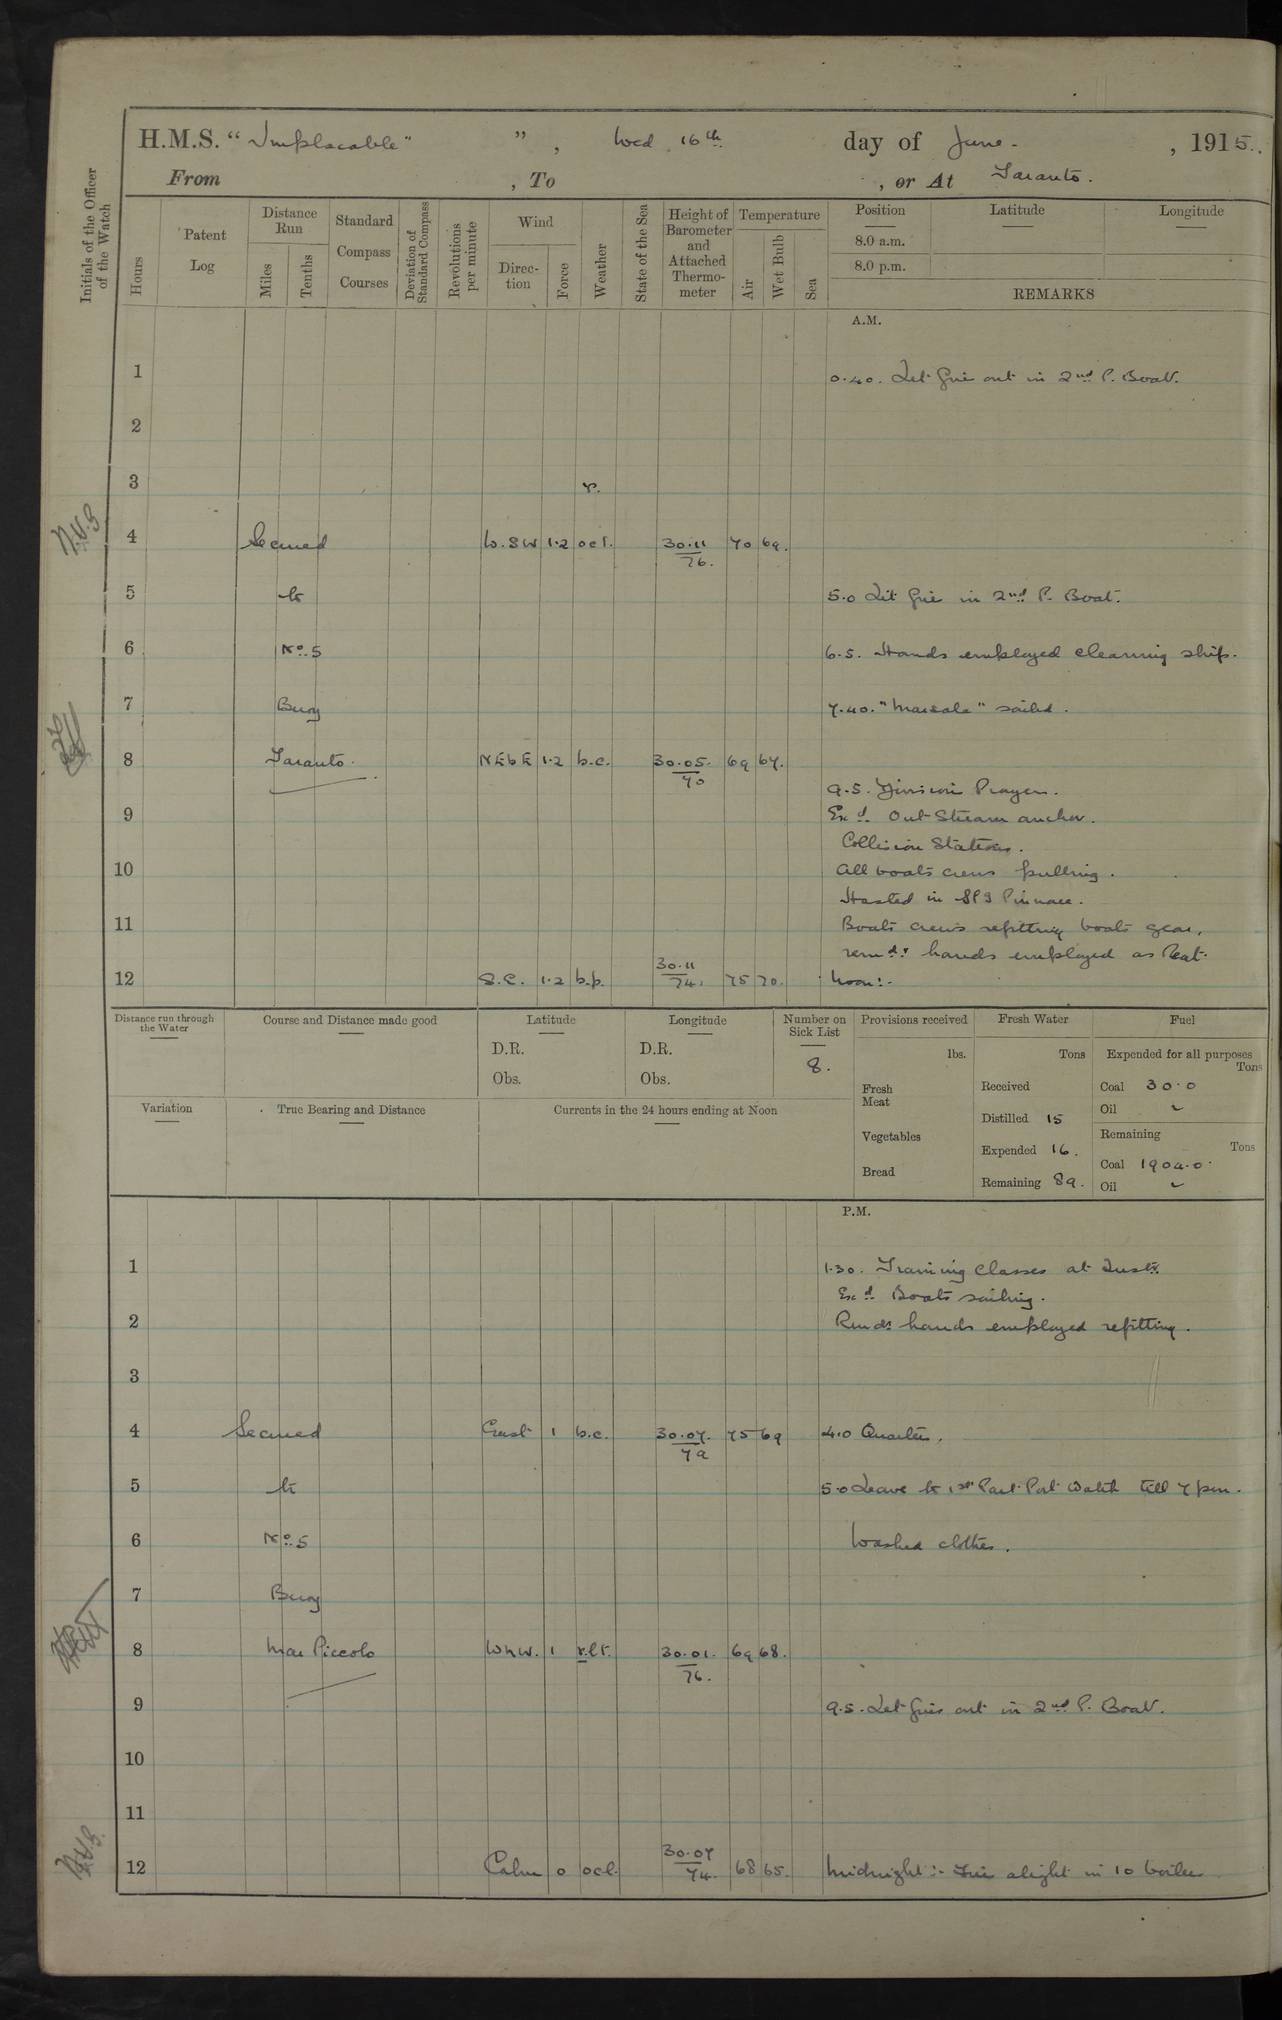 H.M.S. "Implacable" ", Wed 16th day of June. , 1915.
From , To , or At Taranto.
Initials of the Officer of the Watch
Hours
Patent Log
Distance Run
Miles
Tenths
Standard Compass Courses
Deviation of Standard Compass
Revolutions per minute
Wind
Direc-tion
Force
Weather
State of the Sea
Height of Barometer and Attached Thermo-meter
Temperature
Air
Wet Bulb
Sea
Position Latitude Longitude
8.0 a.m.
8.0 p.m.
REMARKS
A.M.
1 0.40. Let fire out in 2nd P. Boat.
2
3 r.
4 Secured W.SW 1.2 ocr. 30.11/76. 70 69.
5 to 5.0 Lit fire in 2nd P. Boat.
6 No. 5 6.5. Hands employed cleaning ship.
7 Buoy 7.40. "Marsala" sailed.
8 Taranto. NEbE 1.2 b.c. 30.05./70 69 67.
9.5. Division Prayers.
9 Exd. Out Stream anchor.
Collision Stations.
10 All boats crews pulling.
Hoisted in Pinnace.
11 Boats crews refitting boats gear,
remdr. hands employed as Reqt.
12 S.E. 1.2 b.p. 30.11/74. 75 70. Noon:-
Distance run through the Water
Course and Distance made good
Latitude
D.R.
Obs.
Longitude
D.R.
Obs.
Number on Sick List
8.
Provisions received
lbs.
Fresh Meat
Vegetables
Bread
Fresh Water
Tons
Received
Distilled 15
Expended 16.
Remaining 89.
Fuel
Expended for all purposes
Tons
Coal 30.0
Oil ~
Remaining
Tons
Coal 1904.0.
Oil ~
Variation
True Bearing and Distance
Currents in the 24 hours ending at Noon
P.M.
1 1.30. Training Classes at Instn.
Exd. Boats sailing.
2 Remdr hands employed refitting.
3
4 Secured East 1 b.c. 30.07./79 75 69 4.0 Quarters.
5 to 5.0 Leave to 1st Part Port Watch till 7 pm.
6 No. 5 Washed clothes.
7 Buoy
8 Mar Piccolo WNW. 1 r.l.t. 30.01./76. 69 68.
9 9.5. Let fires out in 2nd P. Boat.
10
11
12 Calm 0 ocl. 30.07/74. 68 65. Midnight:- Fire alight in 10 boiler